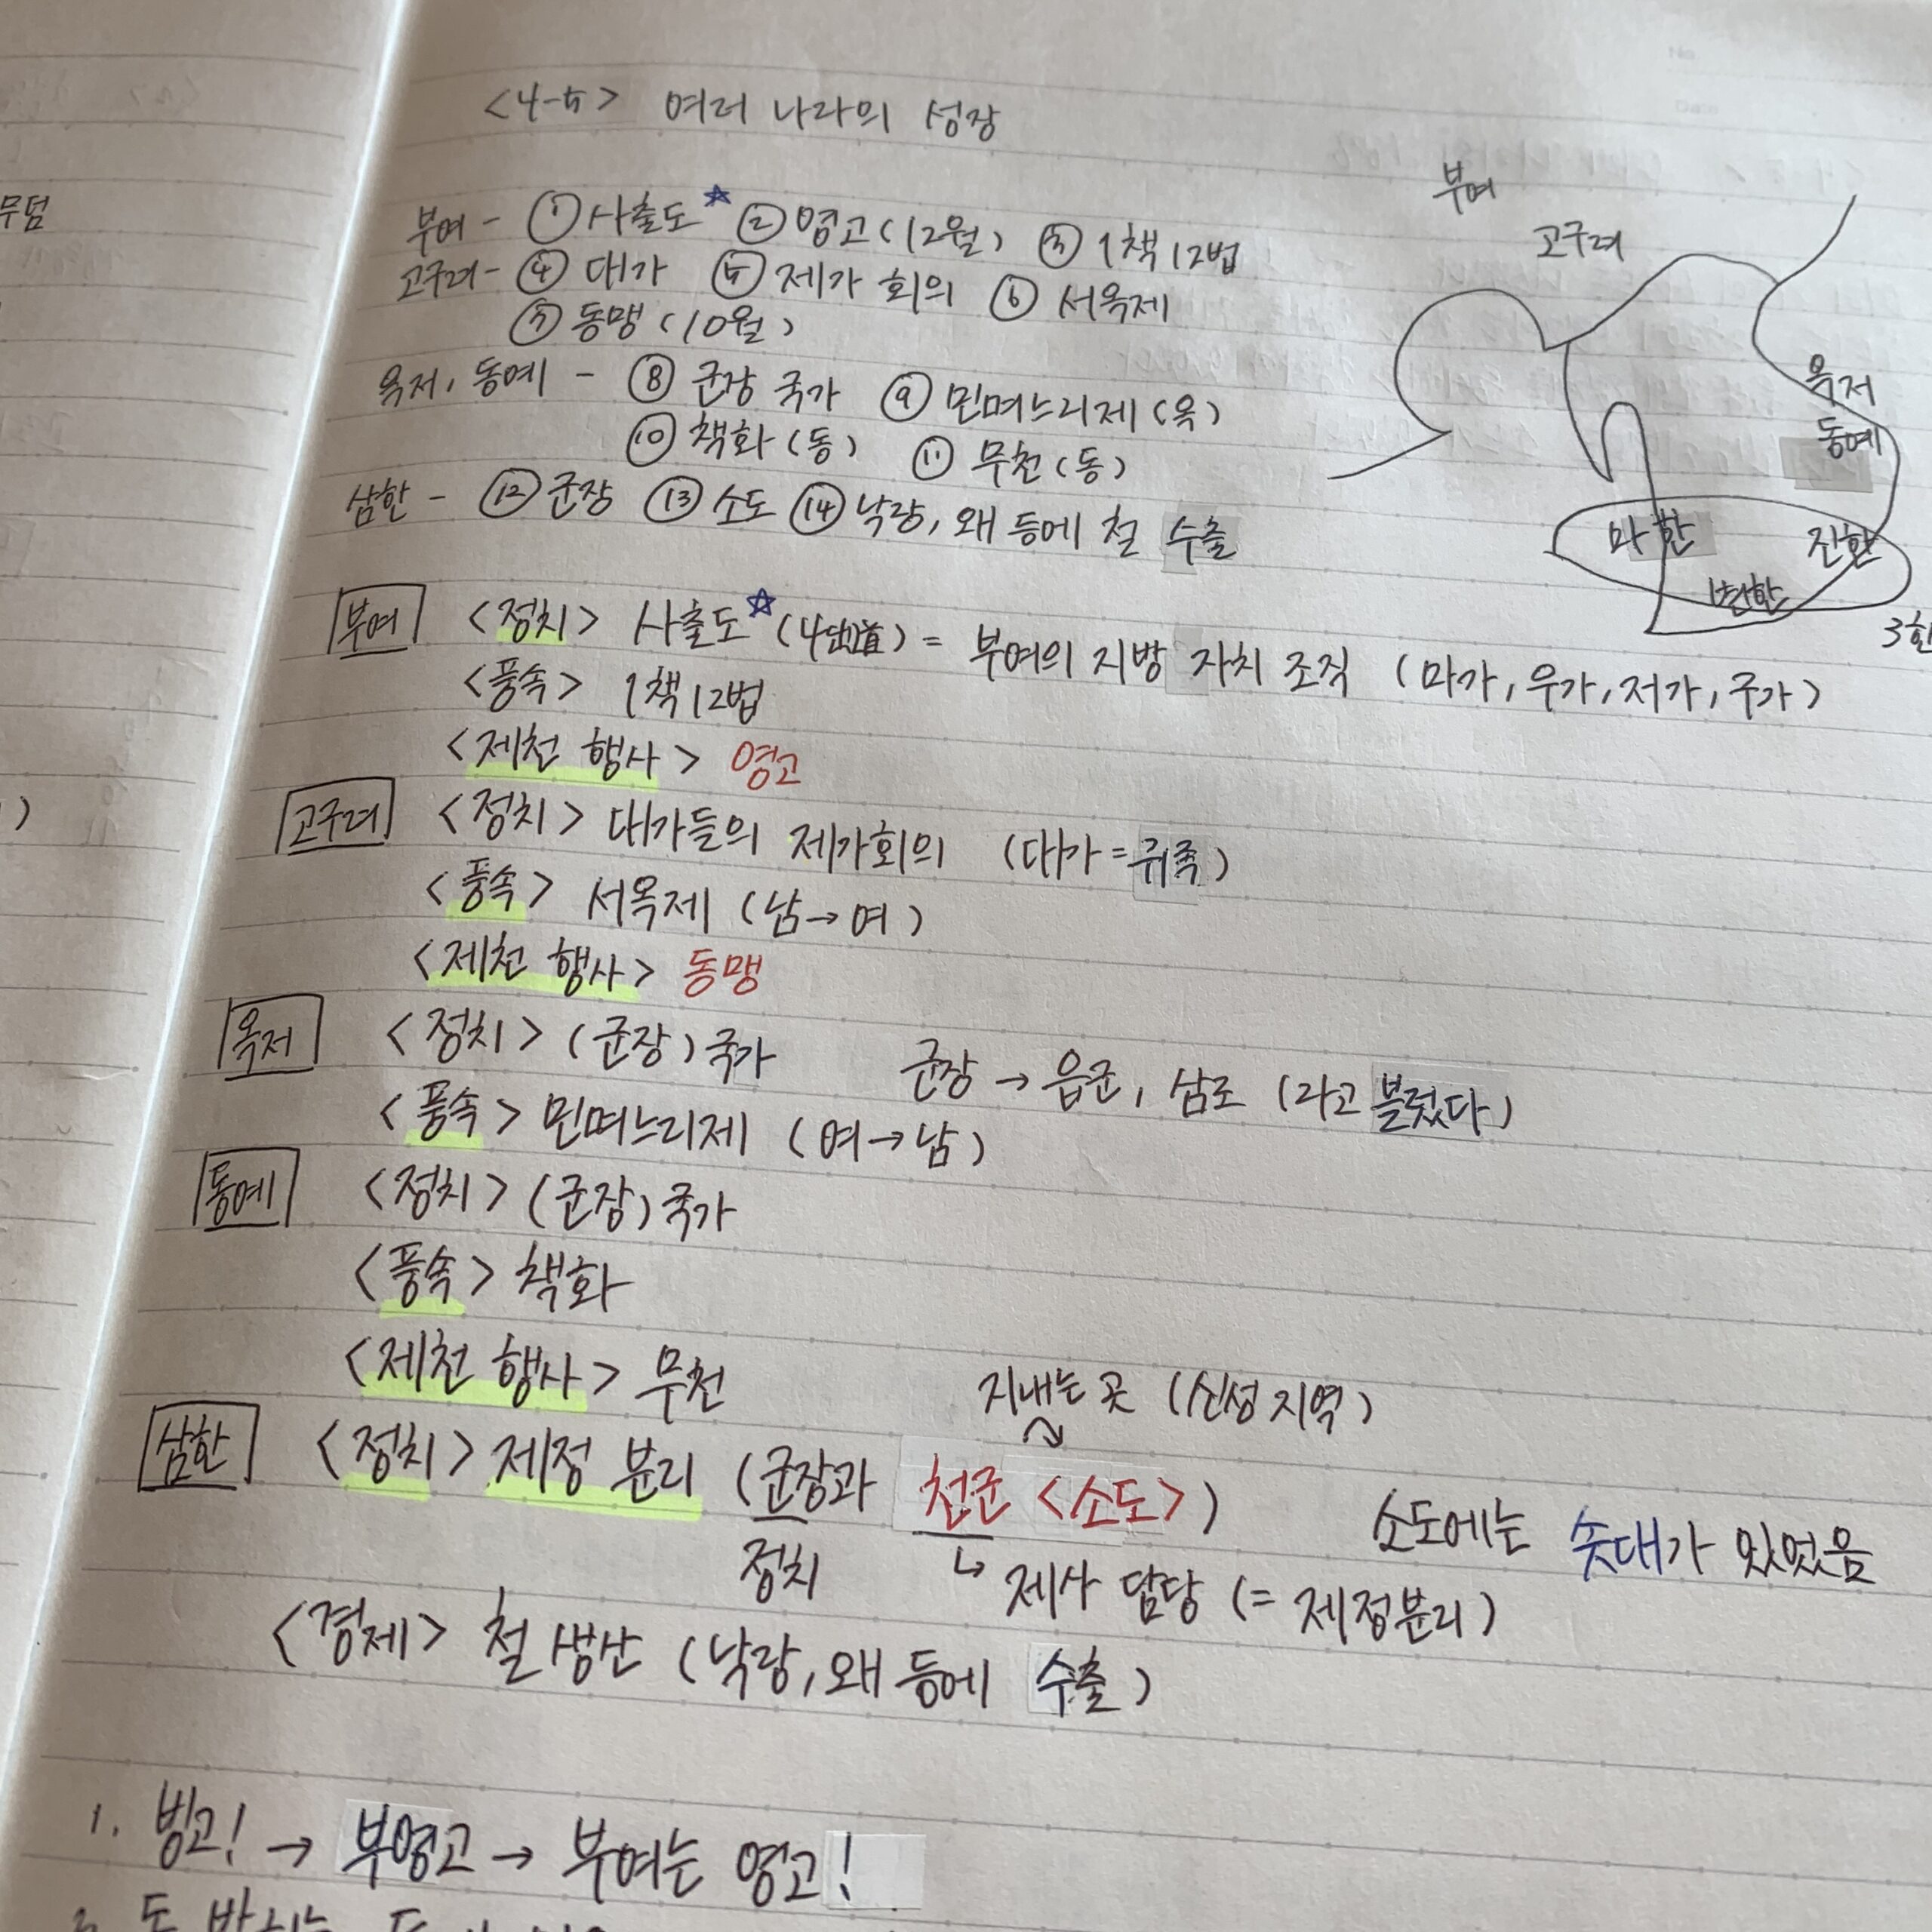 무덤
)
<4-5> 여러 나라의 성장
부여 - ① 사출도☆ ② 영고(12월) ③ 1책12법
고구려 - ④ 대가 ⑤ 제가 회의 ⑥ 서옥제
⑦ 동맹(10월)
옥저, 동예 - ⑧ 군장 국가 ⑨ 민며느리제(옥)
⑩ 책화(동) ⑪ 무천(동)
삼한 - ⑫ 군장 ⑬ 소도 ⑭ 낙랑, 왜 등에 철 수출
부여
고구려
옥저
동예
마한
진한
변한
3한
부여 <정치> 사출도☆ (4出道) = 부여의 지방 자치 조직 (마가, 우가, 저가, 구가)
<풍속> 1책12법
<제천 행사> 영고
고구려 <정치> 대가들의 제가회의 (대가=귀족)
<풍속> 서옥제 (남→여)
<제천 행사> 동맹
옥저 <정치> (군장)국가 군장 → 읍군, 삼로 (라고 불렀다)
<풍속> 민며느리제 (여→남)
동예 <정치> (군장)국가
<풍속> 책화
<제천 행사> 무천
지내는 곳 (신성 지역)
삼한 <정치> 제정 분리 (군장과 천군 <소도>) 소도에는 솟대가 있었음
정치 ↳ 제사 담당 (= 제정분리)
<경제> 철 생산 (낙랑, 왜 등에 수출)
1. 빙고! → 부영고 → 부여는 영고!